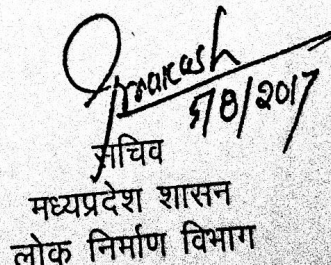 Prakash
5/8/2017
सचिव
मध्यप्रदेश शासन
लोक निर्माण विभाग